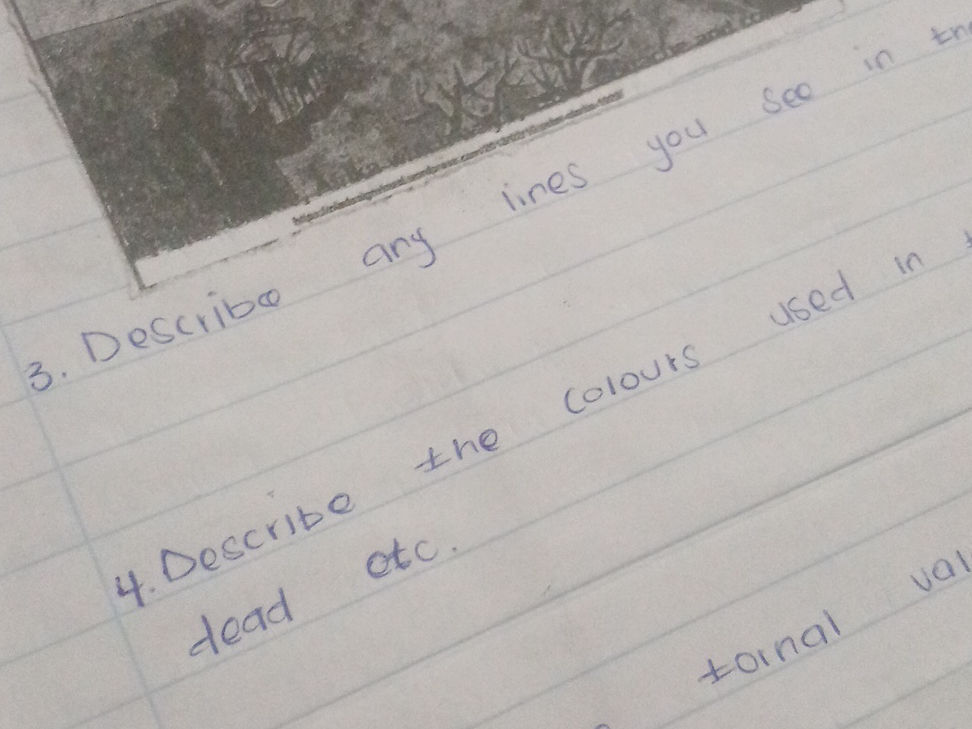 3. Describe any lines you see in
4. Describe the colours used in
dead etc.
tornal